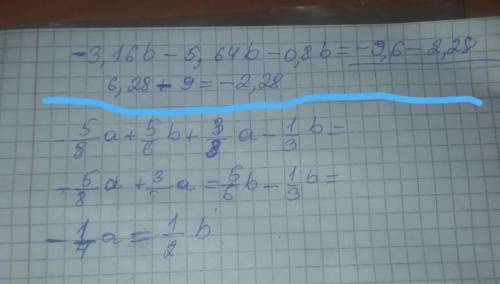 -3,16b-5,64b-0,8b=-9,6-2,28
6,28-9=-2,28
-5/8 a+5/6 b+3/8 a-1/3 b=
-5/8 a+3/ a=5/6 b-1/3 b=
-1/4 a=1/2 b